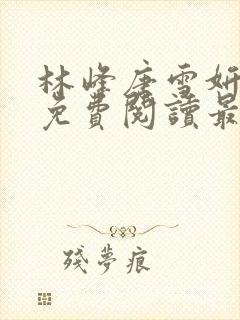 林峰唐雪妍
免費閱讀最
殘夢痕